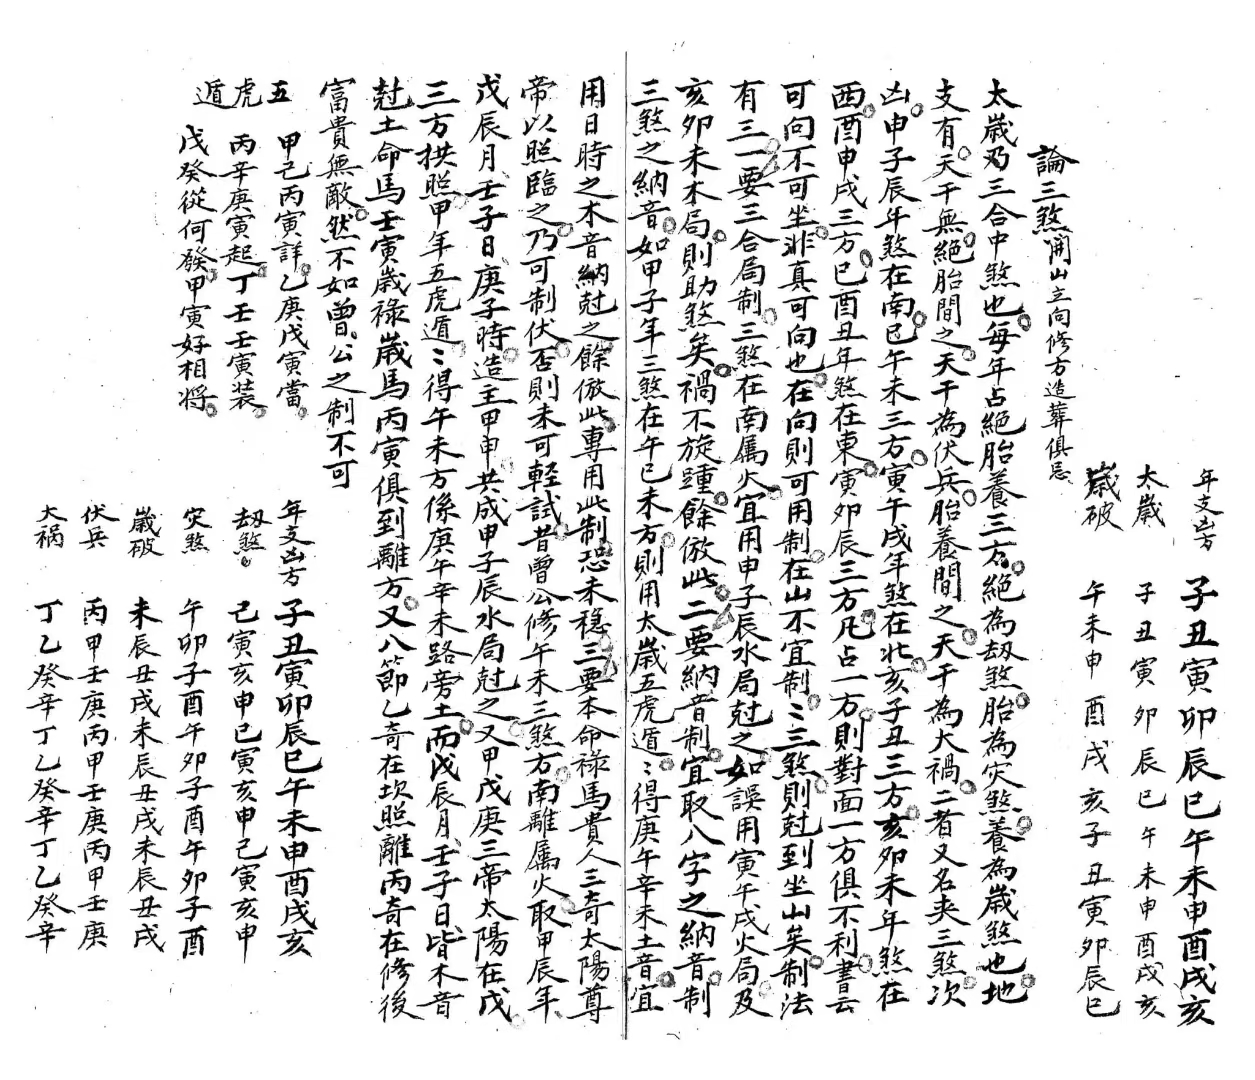 年支凶方 子丑寅卯辰巳午未申酉戌亥
太歲 子丑寅卯辰巳午未申酉戌亥
歲破 午未申酉戌亥子丑寅卯辰巳
論三煞開山立向修方造葬俱忌
太歲乃三合中煞也每年占絕胎養三方絕為刼煞胎為灾煞養為歲煞也地
支有天干無絕胎間之天干為伏兵胎養間之天干為大禍二者又名夾三煞次
凶申子辰年煞在南巳午未三方寅午戌年煞在北亥子丑三方亥卯未年煞在
西酉申戌三方巳酉丑年煞在東寅卯辰三方凡占一方則對面一方俱不利書云
可向不可坐非真可向也在向則可用制在山不宜制〻三煞則尅到坐山矣制法
有三一要三合局制三煞在南属火宜用申子辰水局尅之如誤用寅午戌火局及
亥卯未木局則助煞矣禍不旋踵餘倣此二要納音制宜取八字之納音制
三煞之納音如甲子年三煞在午巳未方則用太歲五虎遁〻得庚午辛未土音宜
用日時之木音納尅之餘倣此專用此制恐未穩三要本命祿馬貴人三奇太陽尊
帝以照臨之乃可制伏否則未可輕試昔曾公修午未三煞方南離属火取甲辰年
戊辰月壬子日庚子時造主甲申共成申子辰水局尅之又甲戊庚三帝太陽在戊
三方拱照甲年五虎遁〻得午未方係庚午辛未路旁土而戊辰月壬子日皆木音
尅土命馬壬寅歲祿歲馬丙寅俱到離方又八節乙奇在坎照離丙奇在修後
富貴無敵然不如曾公之制不可
五虎遁 甲己丙寅詳乙庚戊寅當
丙辛庚寅起丁壬壬寅装
戊癸從何發甲寅好相將
年支凶方 子丑寅卯辰巳午未申酉戌亥
刼煞 巳寅亥申巳寅亥申巳寅亥申
灾煞 午卯子酉午卯子酉午卯子酉
歲破 未辰丑戌未辰丑戌未辰丑戌
伏兵 丙甲壬庚丙甲壬庚丙甲壬庚
大祸 丁乙癸辛丁乙癸辛丁乙癸辛